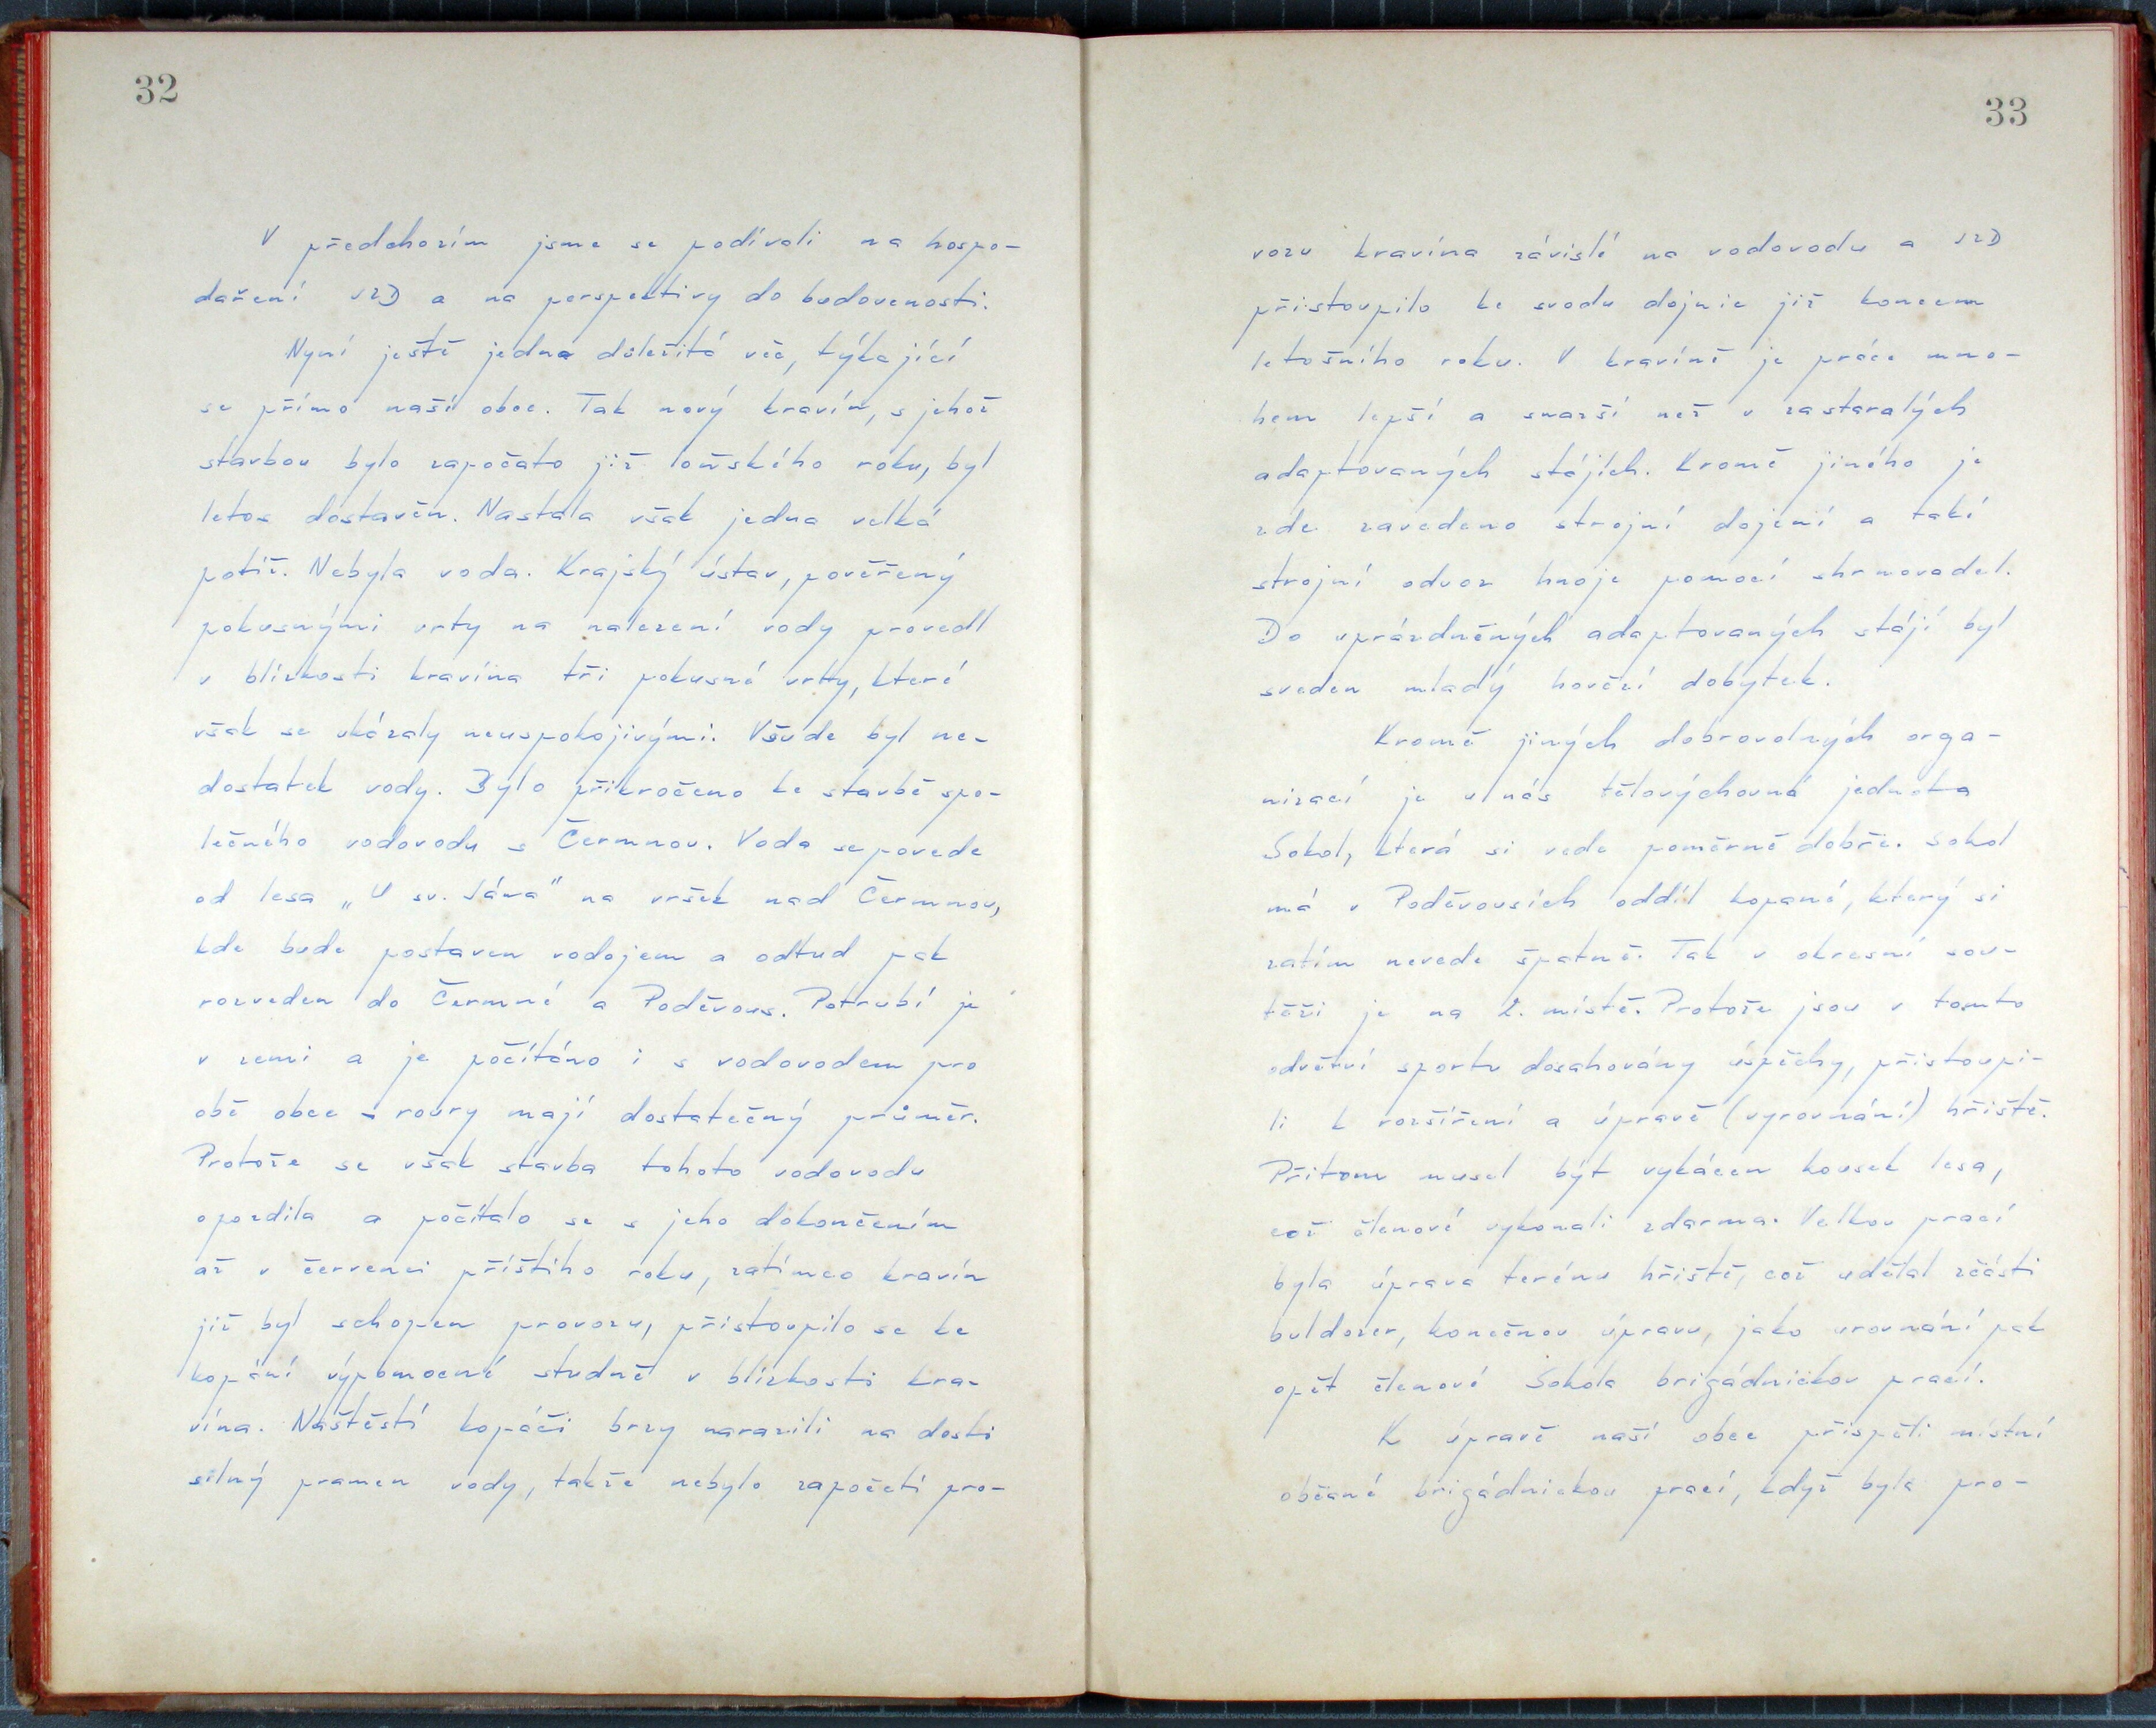 32
V předchozím jsme se podívali na hospo-
daření JZD a na perspektivy do budovenosti.
Nyní ještě jedna důležitá věc, týkající
se přímo naší obce. Tak nový kravín, s jehož
stavbou bylo započato již loňského roku, byl
letos dostavěn. Nastala však jedna velká
potíž. Nebyla voda. Krajský ústav, pověřený
pokusnými vrty na nalezení vody provedl
v blízkosti kravína tři pokusné vrty, které
však se ukázaly neuspokojivými. Všude byl ne-
dostatek vody. Bylo přikročeno ke stavbě spo-
lečného vodovodu s Čermnou. Voda se povede
od lesa „U sv. Jána" na vršek nad Čermnou,
kde bude postaven vodojem a odtud pak
rozveden do Čermné a Poděvous. Potrubí je
v zemi a je počítáno i s vodovodem pro
obě obce - roury mají dostatečný průměr.
Protože se však stavba tohoto vodovodu
opozdila a počítalo se s jeho dokončením
až v červenci příštího roku, zatímco kravín
již byl schopen provozu, přistoupilo se ke
kopání výpomocné studně v blízkosti kra-
vína. Naštěstí kopáči brzy narazili na dosti
silný pramen vody, takže nebylo započetí pro-
33
vozu kravína závislé na vodovodu a JZD
přistoupilo ke svodu dojnic již koncem
letošního roku. V kravíně je práce mno-
hem lepší a snazší než v zastaralých
adaptovaných stájích. Kromě jiného je
zde zavedeno strojní dojení a také
strojní odvoz hnoje pomocí shrnovadel.
Do uprázdněných adaptovaných stájí byl
sveden mladý hovězí dobytek.
Kromě jiných dobrovolných orga-
nizací je u nás tělovýchovná jednota
Sokol, která si vede poměrně dobře. Sokol
má v Poděvousích oddíl kopané, který si
zatím nevede špatně. Tak v okresní sou-
těži je na 2. místě. Protože jsou v tomto
odvětví sportu dosahovány úspěchy, přistoupi-
li k rozšíření a úpravě (vyrovnání) hřiště.
Přitom musel být vykácen kousek lesa,
což členové vykonali zdarma. Velkou prací
byla úprava terénu hřiště, což udělal zčásti
buldozer, konečnou úpravu, jako urovnání pak
opět členové Sokola brigádnickou prací.
K úpravě naší obce přispěli místní
občané brigádnickou prací, když byla pro-